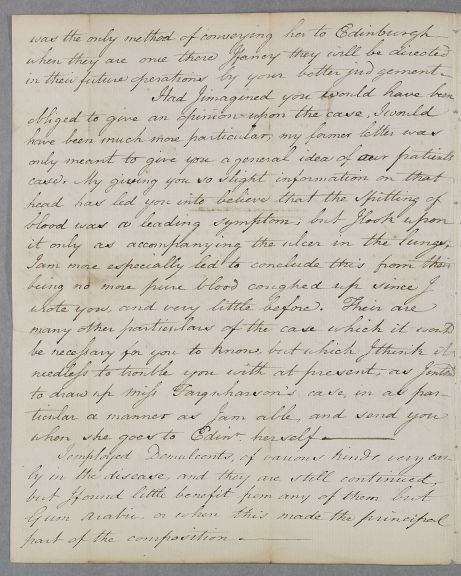 was the only method of conveying her to Edinburgh
when they are once there I fancy they will be directed
in their future operations by your better judgement.
Had I imagined you would have been
obliged to give an opinion upon the case, I would
have been much more particular, my former letter was
only meant to give you a general idea of our patients
case. My giving you so slight information on that
head has led you into believe that the Spitting of
blood was a leading symptom; but I look upon
it only as accompanying the ulcer in the lungs,
I am more especially led to conclude this from their
being no more pure blood coughed up since I
wrote you, and very little before. Their are
many other particulars of the case which it would
be necessary for you to know, but which I think it
needless to trouble you with at present, as I intend
to draw up miss Farquharson's case, in as par-
ticular a manner as I am able, and send you
when she goes to Edinr. herself.
I employed Demulcents, of various kinds, very ear-
ly in the disease, and they are still continued,
but I found little benefit from any of them but
Gum Arabic or when this made the principal
part of the composition.